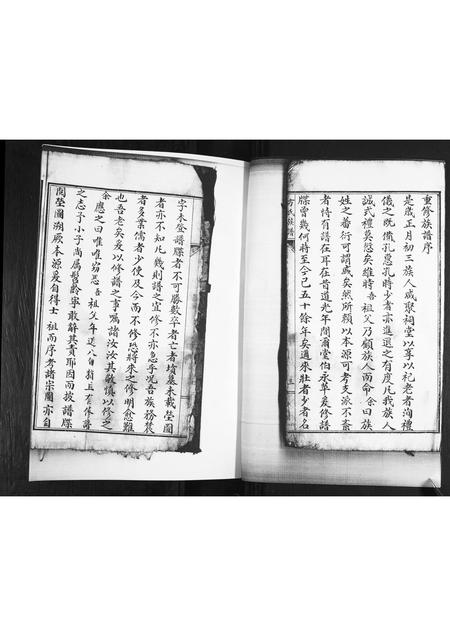 重修族譜序
是歲正月初三族人咸聚祠堂以享以祀老者洵禮
儀之既備孔惠孔時少者亦進退之有度凡我族人
誠式禮莫愆矣維時吾祖父乃顧族人而命余曰族
姓之蕃衍可謂盛矣然所賴以本源可考支派不紊
者恃有譜在耳在昔道光年間爾堂伯永亭爰修譜
牒曾幾何時至今已五十餘年矣邇來壯者少者名
方氏族譜
字未登譜牒者不可勝數卒者亡者墳墓未載塋圖
者亦不知凡幾則譜之宜修不亦急乎況吾族務農
者多業儒者少使及今而不修恐將來之修明愈難
也吾老矣爰以修譜之事囑諸汝汝其敬慎以修之
余應之曰唯唯竊思吾祖父年逾八旬猶且有休譜
之志予小子尚屬髫齡寧敢辭其責耶因而披譜牒
閱塋圖溯厥本源爰自得士祖而序考諸宗圖亦自